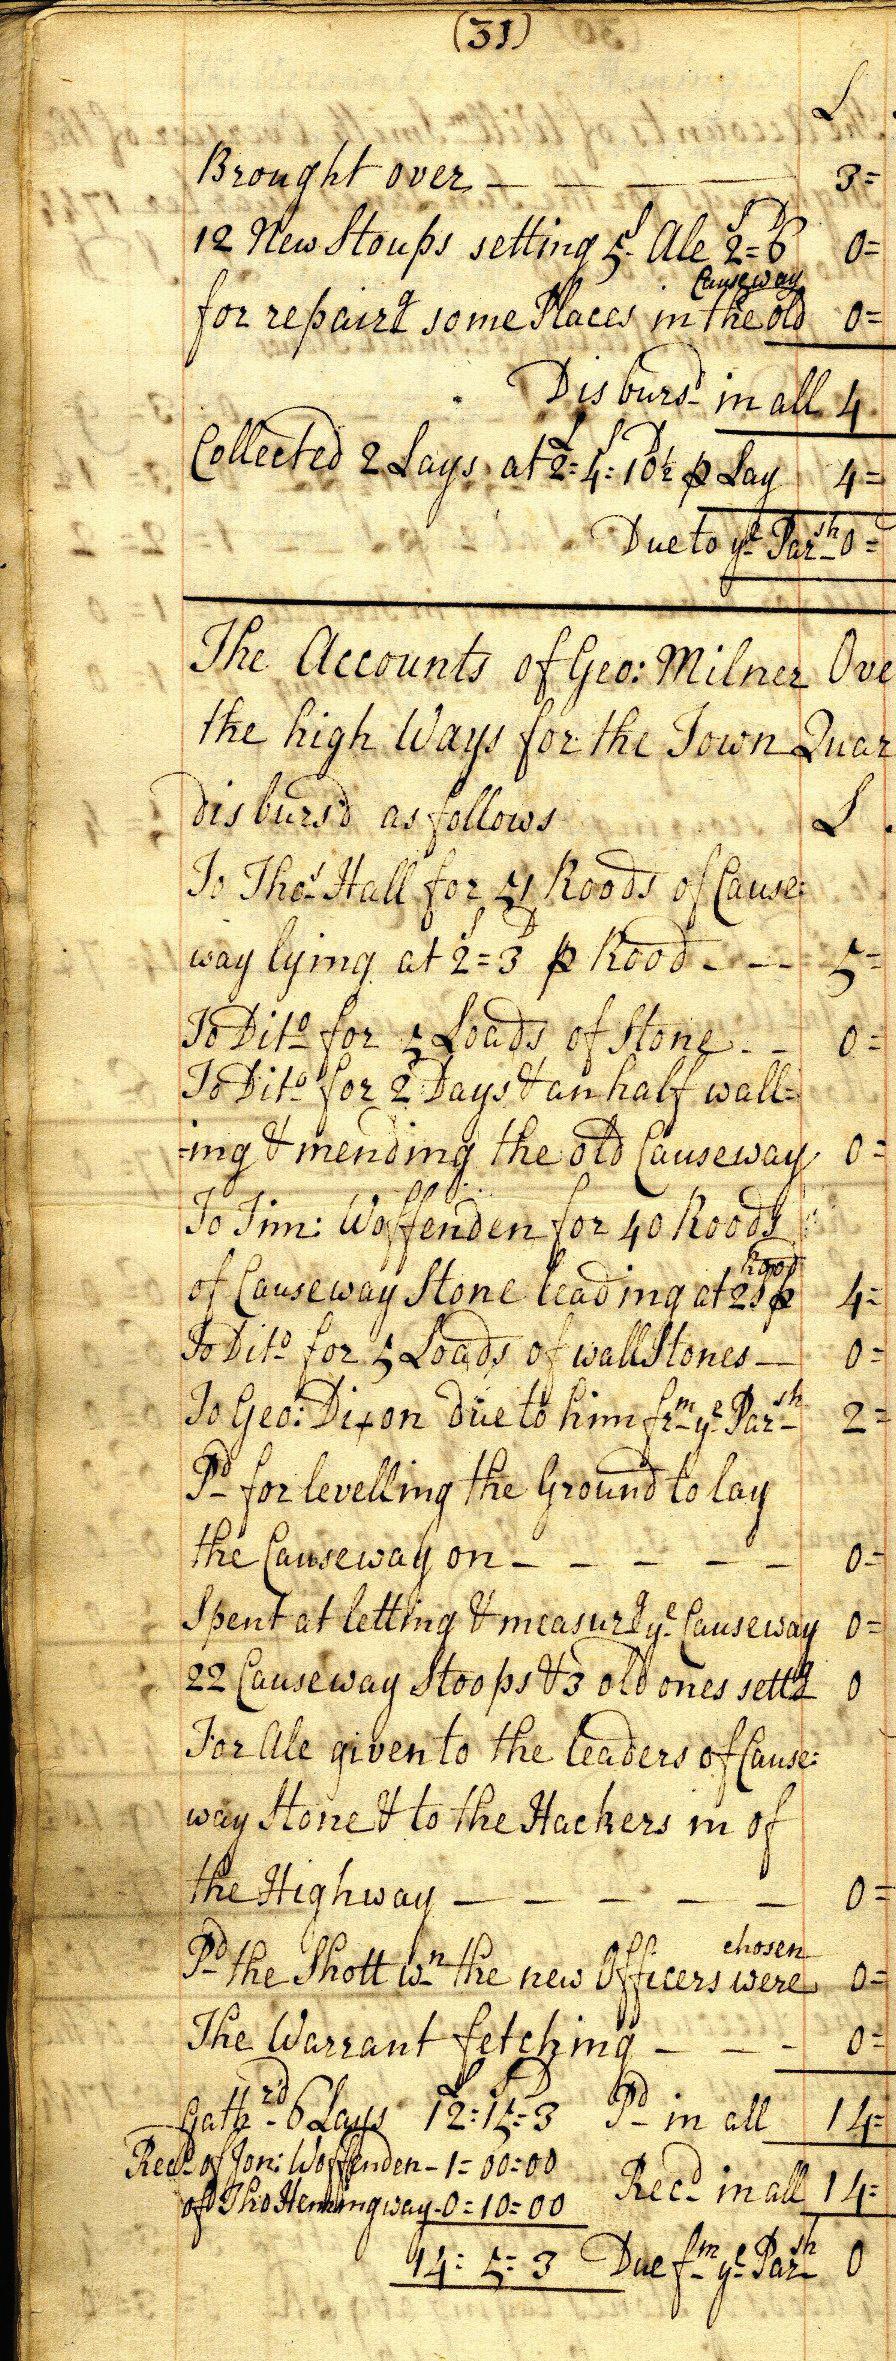 (31)
L
Brought over — — — — 3=
12 New Stoups setting 5s Ale 2s=6D 0=
Causeway
for repairg some Places in the old 0=
Disbursd in all 4
Collected 2 Lays at 2L=4S=10½D p Lay 4=
Due to ye Parsh 0=
The Accounts of Geo: Milner Ove
the high Ways for the Town Quar
disburs'd as follows L
To Thos Hall for 51 Roods of Cause:
way lying at 2S=3D p Rood - - - 5=
To Dito for 5 Loads of Stone - - 0=
To Dito for 2 Days & an half wall=
-ing & mending the old Causeway 0=
To Jim: Woffenden for 40 Roods
Rood
of Causeway Stone leading at 2s p 4=
To Dito for 5 Loads of wall Stones — 0=
To Geo: Dixon due to him frm ye Parsh 2=
Pd for levelling the Ground to lay
the Causeway on — — — — — 0=
Spent at letting & measurg ye Causeway 0=
22 Causeway Stoops & 3 old ones settg 0
For Ale given to the leaders of Cause:
way Stone & to the Hackers in of
the Highway — — — — — 0=
chosen
Pd the Shott wn the new Officers were 0=
The Warrant fetching — — - 0=
Gathrd 6 Lays 12L:15S=3D Pd in all 14=
Recd of Jon: Woffenden - 1=00=00
of Tho Hemingway - 0=10=00 Recd in all 14=
14: 5= 3 Due fm ye Parsh 0